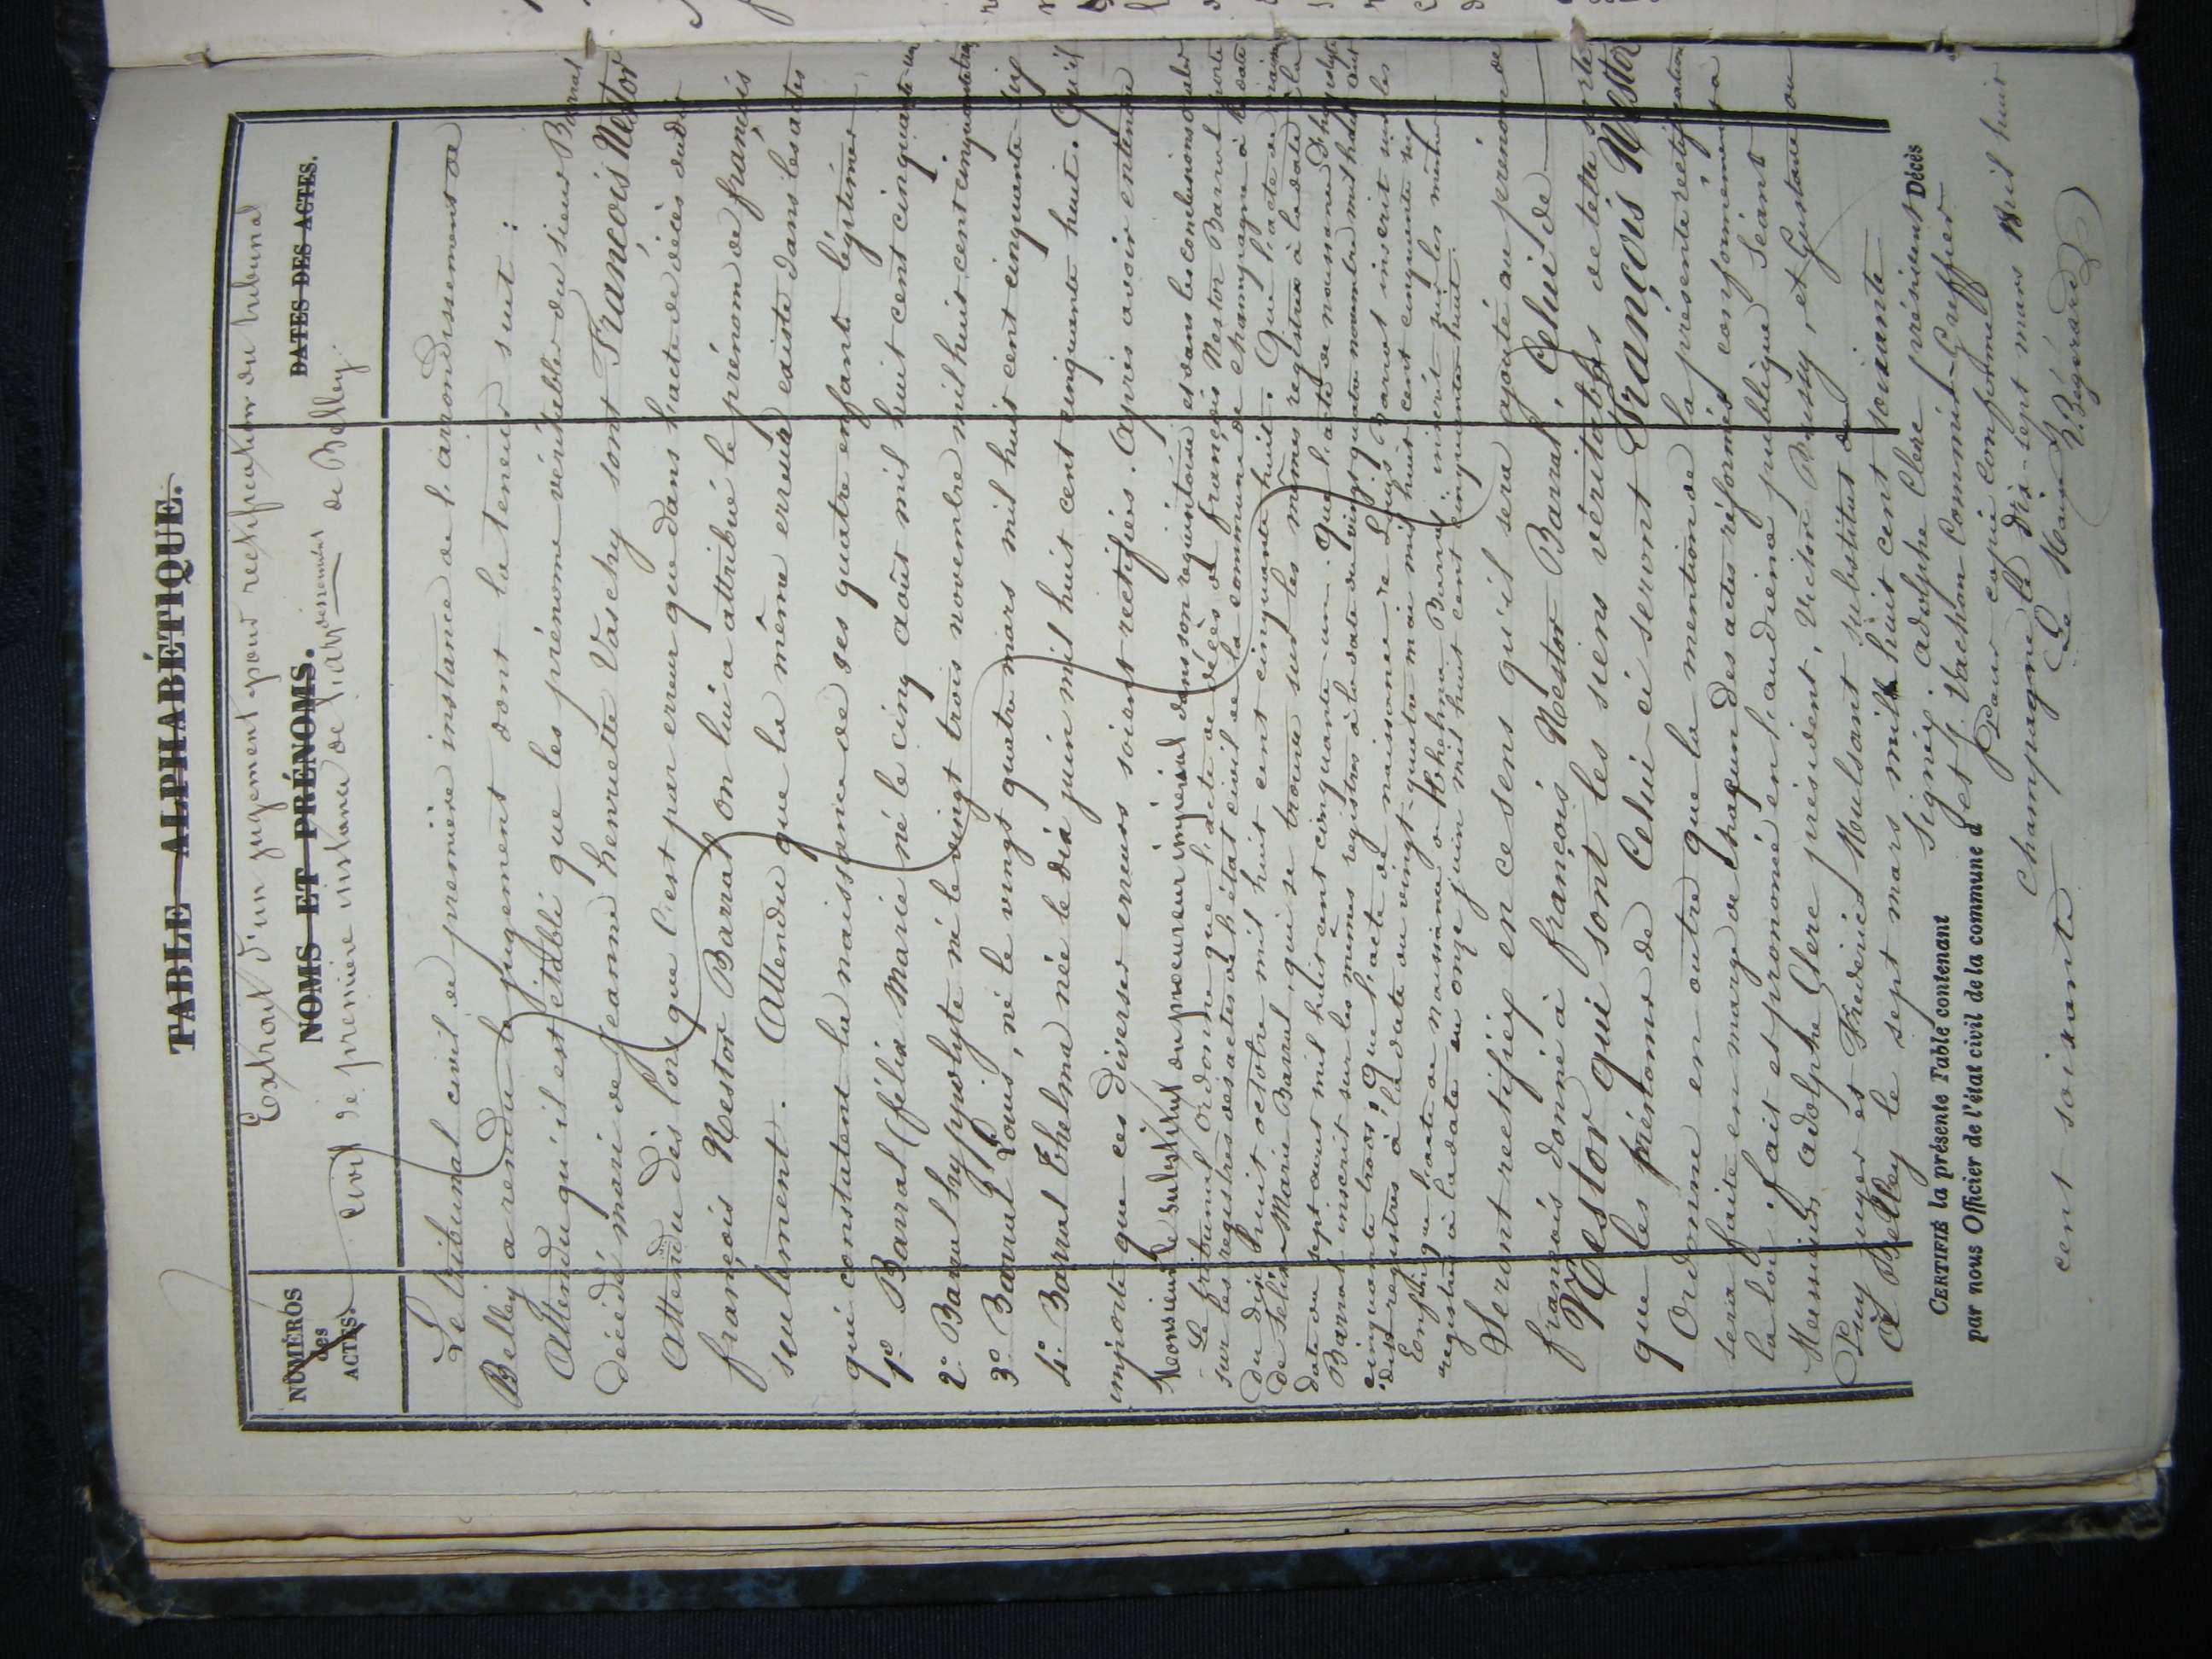 TABLE ALPHABÉTIQUE.
Extrait d'un jugement pour rectification du tribunal
NUMÉROS des ACTES
NOMS ET PRÉNOMS.
DATES DES ACTES.
civil de première instance de l'arrondissement de Belley.
Le tribunal civil de première instance de l'arrondissement de
Belley a rendu le jugement dont la teneur suit :
Attendu qu'il est établi que les prénoms véritables du sieur Barral
décédé mari de jeanne henriette Vaschy sont François Nestor
attendu dès lors que c'est par erreur que dans l'acte de décès dudit
françois Nestor Barral on lui a attribué le prénom de françois
seulement. Attendu que la même erreur existe dans les actes
qui constatent la naissance de ses quatre enfants légitimes
1º Barral (félix Marie né le cinq août mil huit cent cinquante un
2º Barral hyppolyte né le vingt trois novembre mil huit cent cinquante trois
3º Barral Louis, né le vingt quatre mars mil huit cent cinquante six
4º Barral Thelma née le dix juin mil huit cent cinquante huit. Qu'il
importe que ces diverses erreurs soient rectifiées. Après avoir entendu
Monsieur le substitut du procureur impérial dans son réquisitoire et dans les conclusions orales
Le tribunal ordonne que l'acte de décès de françois Nestor Barral porté
sur les registres des actes de l'état civil de la commune de champagne à la date
du dix huit octobre mil huit cent cinquante huit. Que l'acte de
de Félix Marie Barral qui se trouve sur les mêmes registres à la date
date du sept août mil huit cent cinquante un. Que l'acte de naissance d'hyppolyte
Barral inscrit sur les mêmes registres à la date du vingt quatre novembre mil huit cent
cinquante trois, que l'acte de naissance de Louis Barral inscrit sur les
dits registres à la date du vingt-quatre mars mil huit cent cinquante six
Enfin que l'acte de naissance de Thelma Barral inscrit sur les mêmes
registres à la date du onze juin mil huit cent cinquante huit.
Seront rectifiés en ce sens qu'il sera ajouté au prénom de
françois donné à françois Nestor Barral, Celui de
Nestor qui sont les siens véritables de telle sorte
que les prénoms de Celui ci seront François Nestor
Ordonne en outre que la mention de la présente rectification
sera faite en marge de chacun des actes réformés conformément à
la loi. fait et prononcé en l'audience publique Séant
Messieurs adolphe Clerc président, Victor Buissy, et Gustave
Puy juges et Frédéric Mulsant substitut
à Belley le sept mars mil huit cent soixante
Signé: adolphe Clerc président
et J. Vachon Commis Greffier
CERTIFIÉ la présente Table contenant Décès
par nous Officier de l'état civil de la commune d
Pour copie conforme
Champagne le dix-sept mars mil huit
cent soixante Le Maire